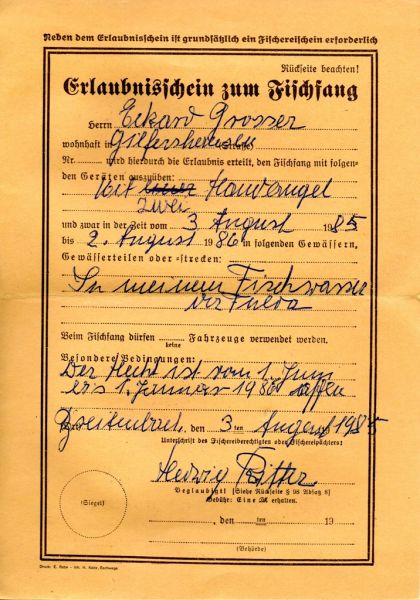 Neben dem Erlaubnisschein ist grundsätzlich ein Fischereischein erforderlich
Rückseite beachten!
Erlaubnisschein zum Fischfang
Herrn Eckard Grosser
wohnhaft in
Nr. wird hierdurch die Erlaubnis erteilt, den Fischfang mit folgen-
den Geräten auszuüben:
Mit einer Handangel
zwei
und zwar in der Zeit vom 3 August 1985
bis 2. August 1986 in folgenden Gewässern,
Gewässerteilen oder -strecken:
In meinem Fischwasser
der Fulda
Beim Fischfang dürfen keine Fahrzeuge verwendet werden.
Besondere Bedingungen:
Der Hecht ist vom 1. Juni
bis 1. Januar 1986 offen
Breitenbach, den 3ten August 1985
Unterschrift des Fischereiberechtigten oder Fischereipächters:
Hedwig Ritter
Beglaubigt! [Siehe Rückseite § 98 Absatz 8]
Gebühr: Eine M erhalten.
(Siegel)
, den ten 19
(Behörde)